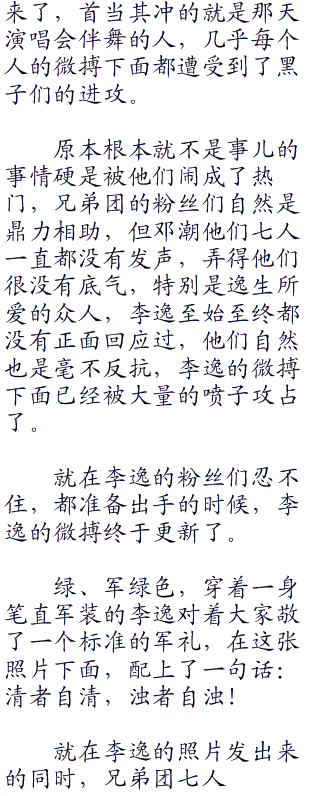 来了，首当其冲的就是那天
演唱会伴舞的人，几乎每个
人的微搏下面都遭受到了黑
子们的进攻。
原本根本就不是事儿的
事情硬是被他们闹成了热
门，兄弟团的粉丝们自然是
鼎力相助，但邓潮他们七人
一直都没有发声，弄得他们
很没有底气，特别是逸生所
爱的众人，李逸至始至终都
没有正面回应过，他们自然
也是毫不反抗，李逸的微搏
下面已经被大量的喷子攻占
了。
就在李逸的粉丝们忍不
住，都准备出手的时候，李
逸的微搏终于更新了。
绿、军绿色，穿着一身
笔直军装的李逸对着大家敬
了一个标准的军礼，在这张
照片下面，配上了一句话：
清者自清，浊者自浊！
就在李逸的照片发出来
的同时，兄弟团七人